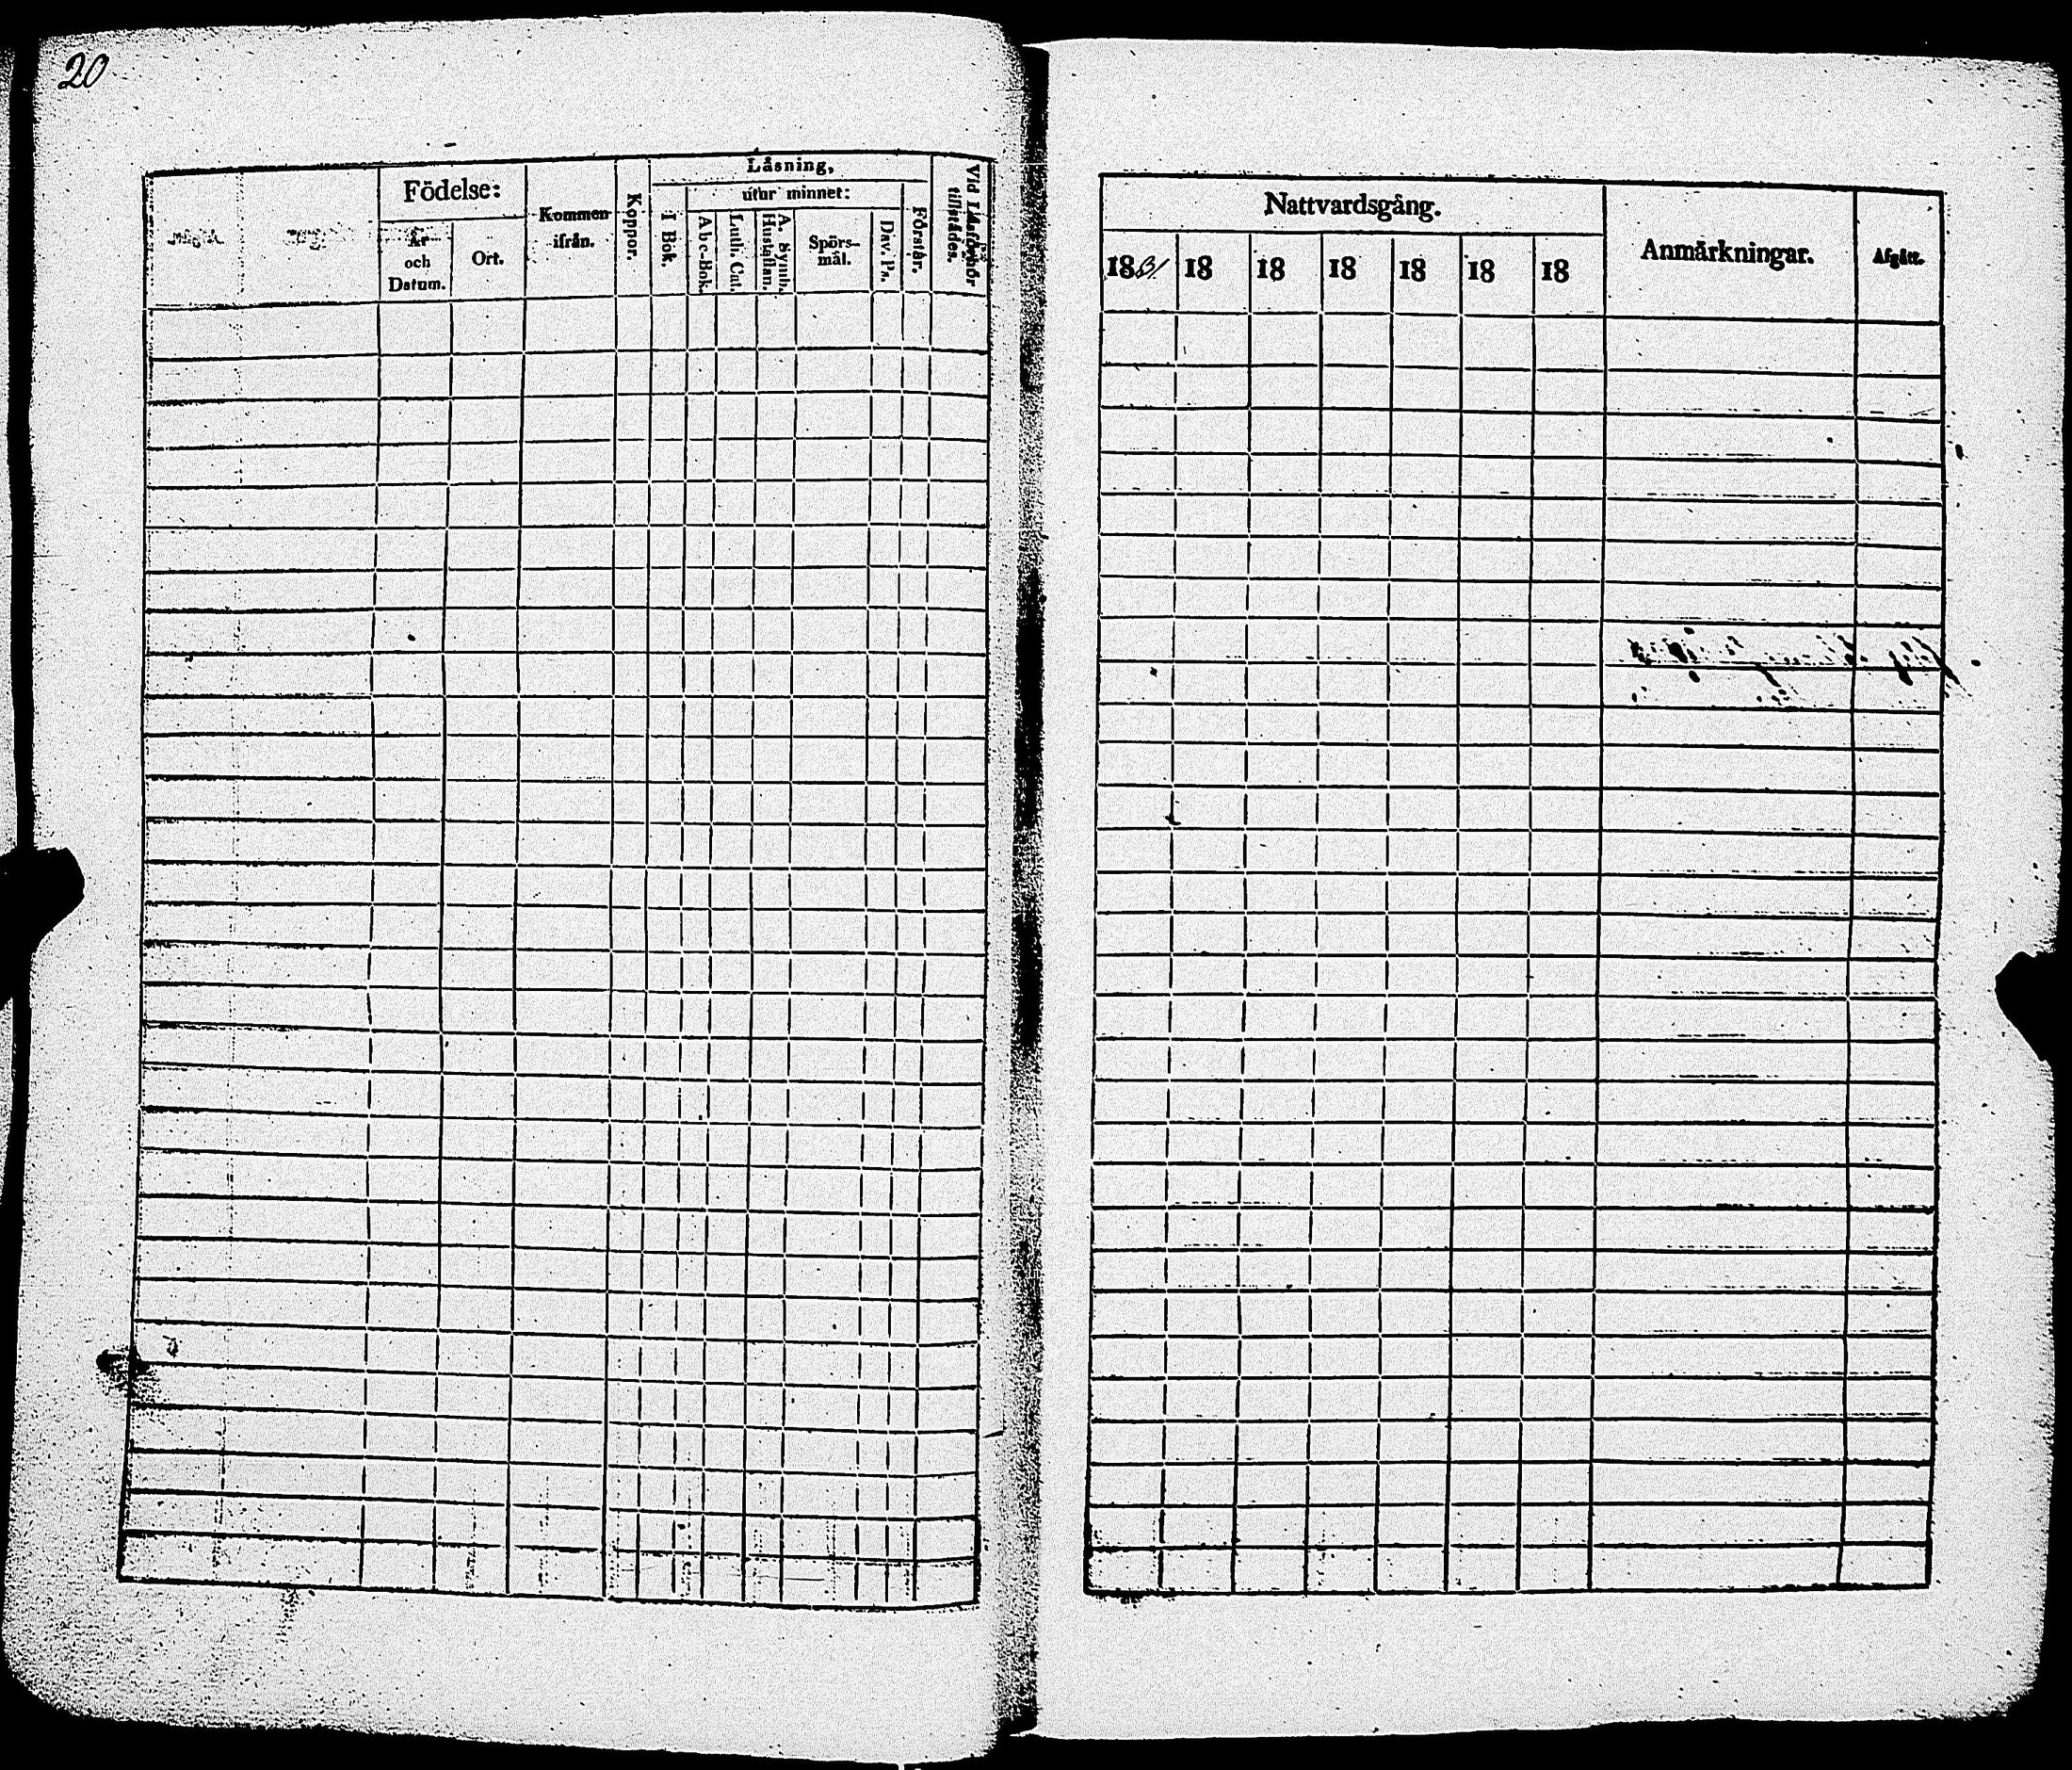 20
Födelse:
År
och
Datum.
Ort.
Kommen
ifrån.
Koppor.
Låsning,
I Bok.
utur minnet:
Abc-Bok.
Luth. Cat.
A. Symb.
Hustaflan.
Spörs-
mål.
Dav. Ps.
Förstår.
Vid Låsförhör
tillstådes.
Nattvardsgång.
1831 18 18 18 18 18 18
Anmårkningar.
Afgått.